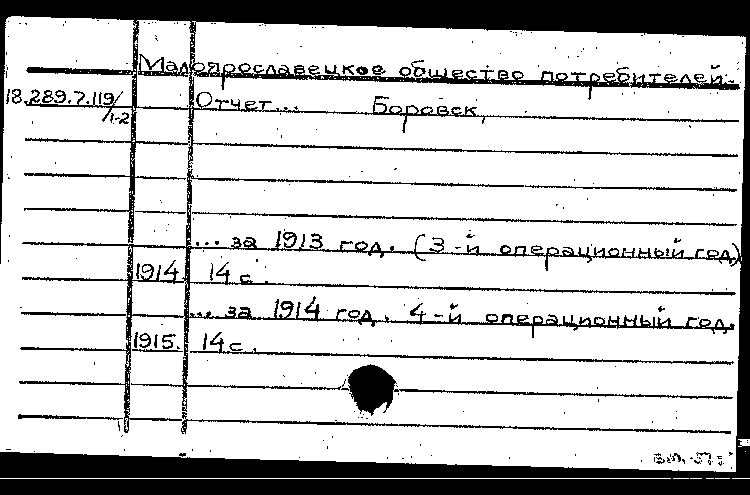 Малоярославецкое общество потребителей.
18.289.7.119/1-2 Отчет... Боровск,
... за 1913 год. (3-й операционный год)
1914. 14 с.
... за 1914 год. 4-й операционный год.
1915. 14 с.